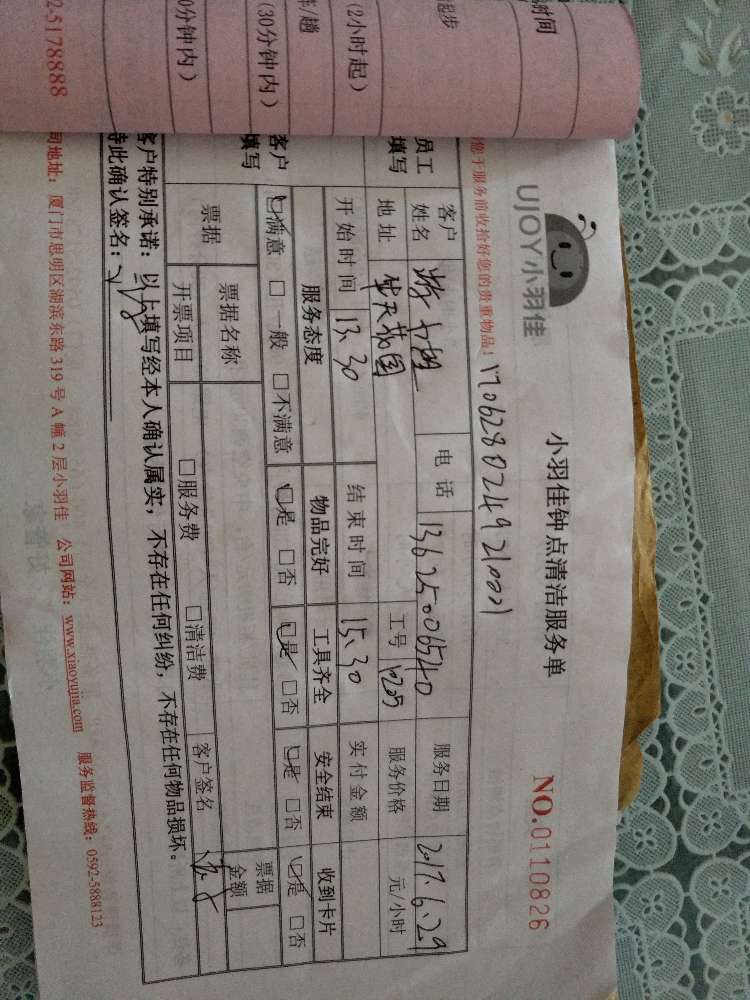 时间
起步
(2小时起)
车/趟
(30分钟内)
0分钟内)
2-5178888
UJOY小羽佳
小羽佳钟点清洁服务单
NO.0110826
您于服务前收拾好您的贵重物品!
1706280249210001
员工
填写
客户
姓名
电话
13625006540
服务日期
2017.6.29
地址
工号
服务价格
元/小时
开始时间
13.30
结束时间
15.30
实付金额
客户
填写
服务态度
物品完好
工具齐全
安全结束
收到卡片
☑满意 □一般 □不满意
☑是 □否
☑是 □否
☑是 □否
☑是 □否
票据
票据名称
开票项目
□服务费
□清洁费
客户签名
票据
金额
客户特别承诺:以上填写经本人确认属实,不存在任何纠纷,不存在任何物品损坏。
特此确认签名:
司地址:厦门市思明区湖滨东路319号A幢2层小羽佳 公司网站:www.xiaoyujia.com 服务监督热线:0592-5888123